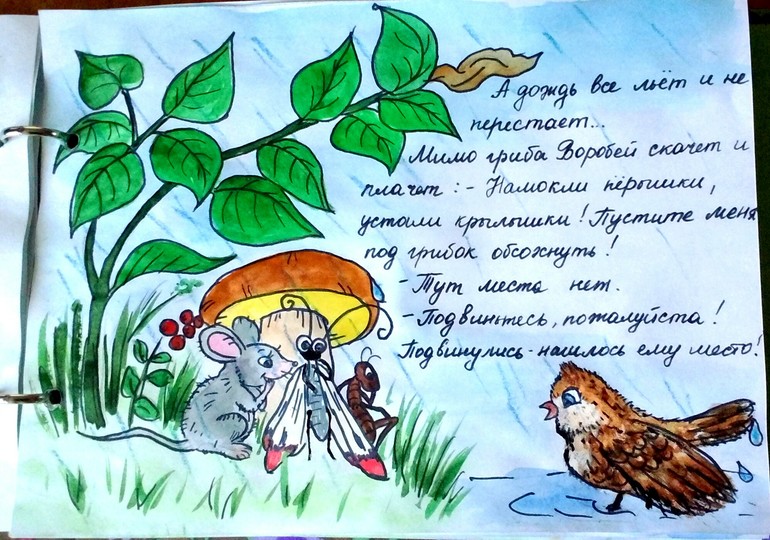 А дождь все льёт и не
перестает...
Мимо гриба Воробей скачет и
плачет :- Намокли пёрышки,
устали крылышки! Пустите меня
под грибок обсохнуть!
- Тут места нет.
- Подвиньтесь, пожалуйста!
Подвинулись - нашлось ему место!